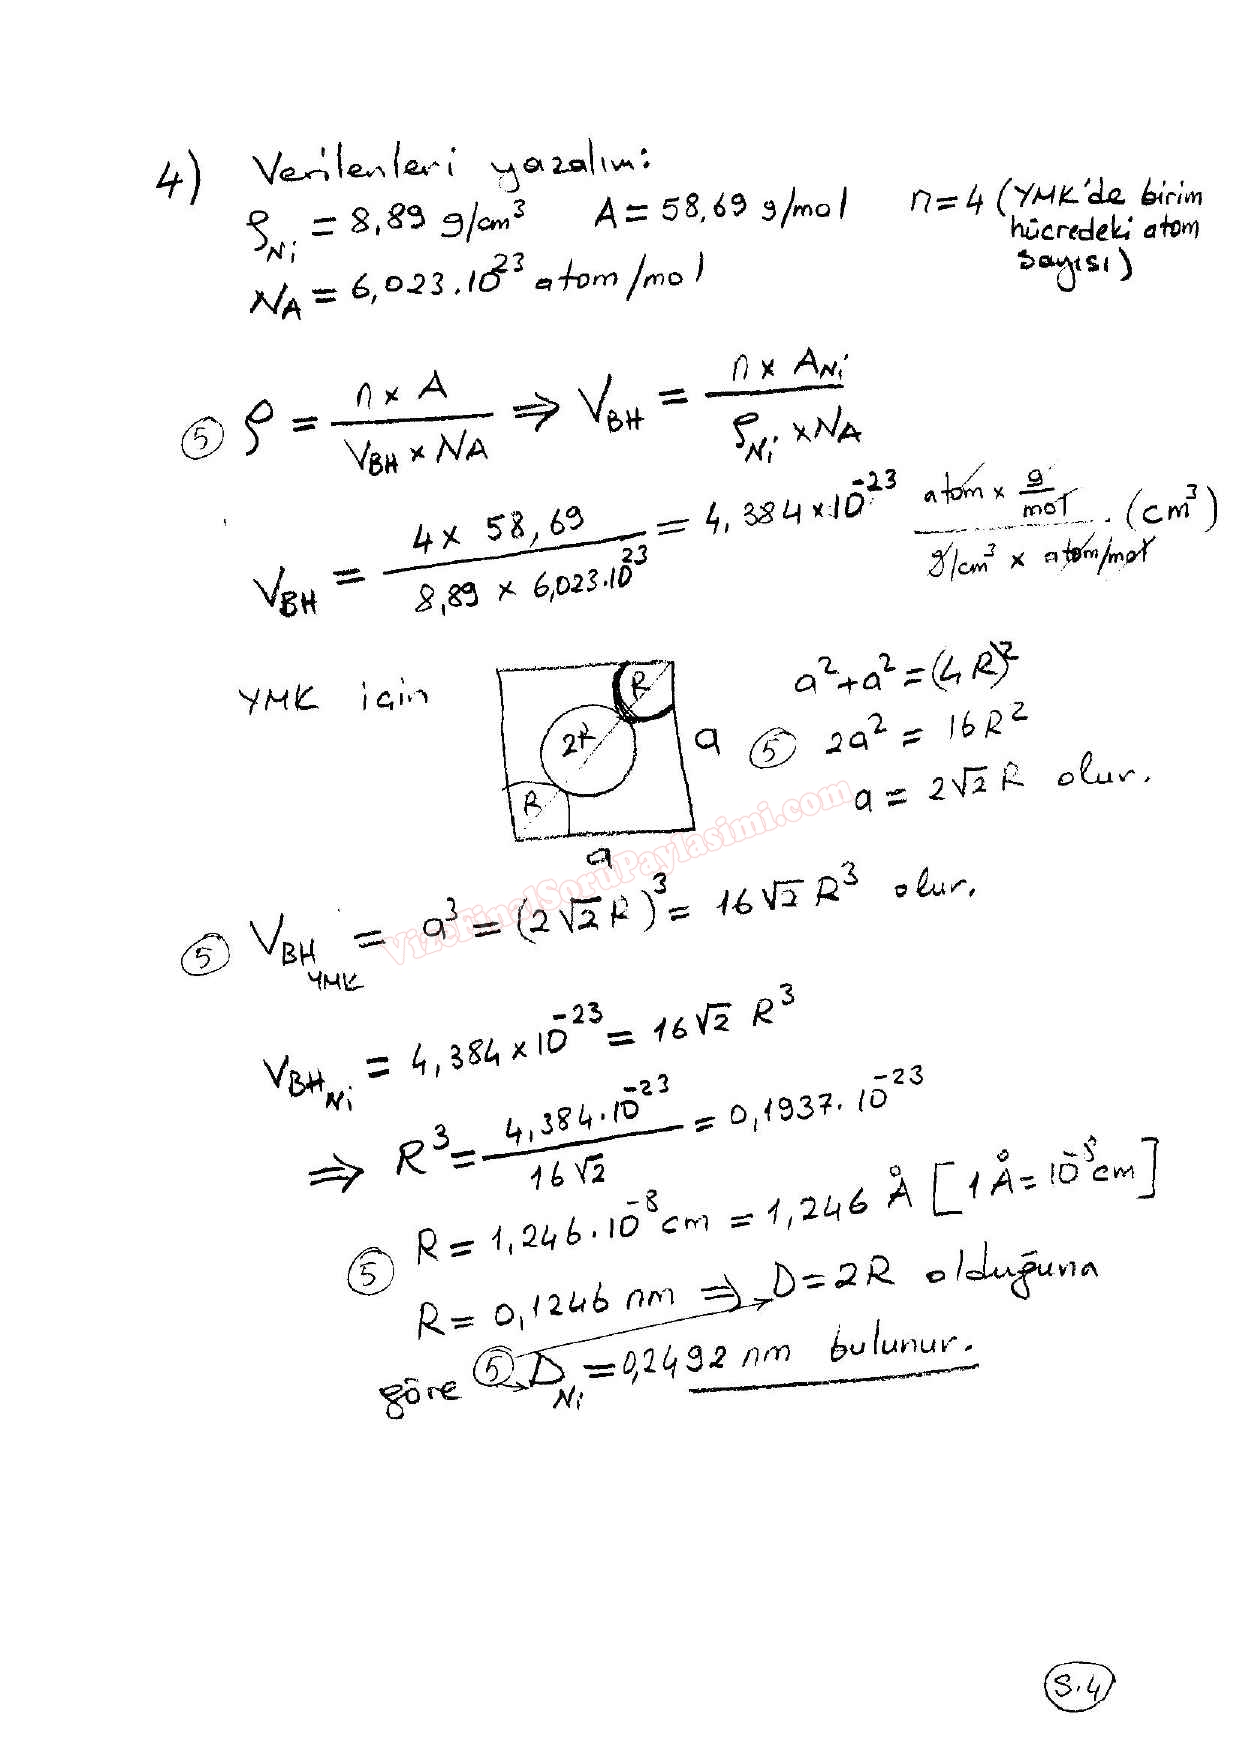 4) Verilenleri yazalım:
ρNi = 8,89 g/cm³ A = 58,69 g/mol n = 4 (YMK'de birim
hücredeki atom
sayısı)
NA = 6,023.10²³ atom/mol
⑤ ρ = (n x A) / (VBH x NA) ⇒ VBH = (n x ANi) / (ρNi x NA)
VBH = (4 x 58,69) / (8,89 x 6,023.10²³) = 4,384 x 10⁻²³ (atom x g/mol) / (g/cm³ x atom/mol) . (cm³)
YMK için
R
2R
R
a
a
a² + a² = (4R)²
⑤ 2a² = 16R²
a = 2√2 R olur.
VizeFinalSoruPaylasimi.com
⑤ VBH YMK = a³ = (2√2 R)³ = 16√2 R³ olur.
VBHNi = 4,384 x 10⁻²³ = 16√2 R³
⇒ R³ = (4,384.10⁻²³) / (16√2) = 0,1937.10⁻²³
⑤ R = 1,246.10⁻⁸ cm = 1,246 Å [1 Å = 10⁻⁸ cm]
R = 0,1246 nm ⇒ D = 2R olduğuna
göre ⑤ DNi = 0,2492 nm bulunur.
S.4